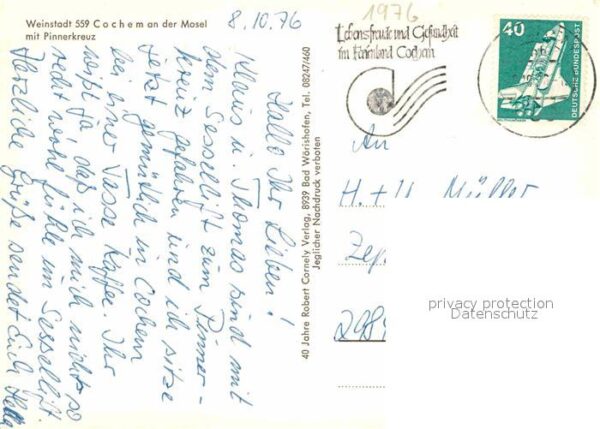 Weinstadt 559 Cochem an der Mosel
mit Pinnerkreuz
8.10.76
1976
Hallo Ihr Lieben!
Klaus u. Thomas sind mit
dem Sessellift zum Pinner-
kreuz gefahren und ich sitze
jetzt gemütlich in Cochem
bei einer Tasse Kaffee. Ihr
wißt ja, daß ich mich nicht so
recht wohl fühle im Sessellift.
Herzliche Grüße sendet Euch
40 Jahre Robert Cornely Verlag, 8939 Bad Wörishofen, Tel. 08247/460
Jeglicher Nachdruck verboten
Lebensfreude und Gesundheit
im Ferienland Cochem
40
DEUTSCHE BUNDESPOST
An
H. + U. Müller
Zep
298
privacy protection
Datenschutz